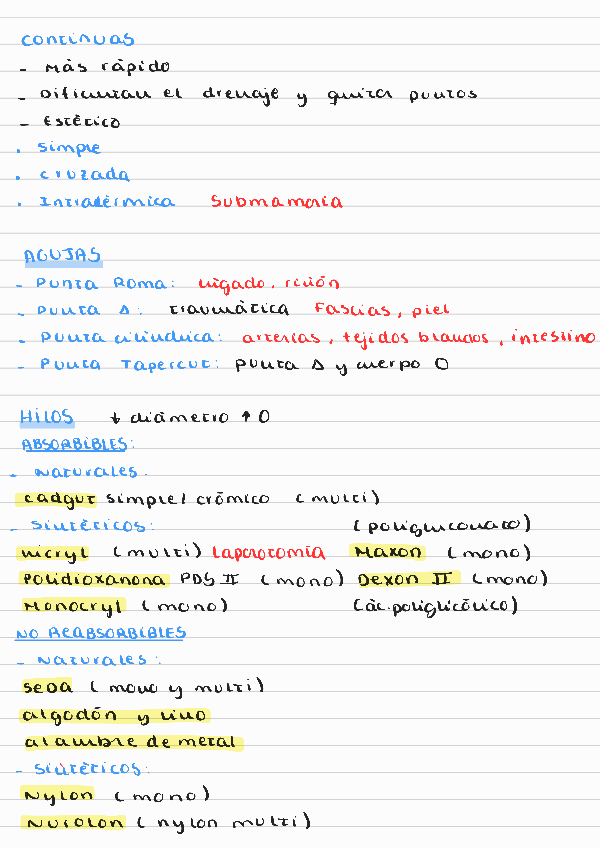 continuas
- Más rápido
- Dificultan el drenaje y quitar puntos
- Estético
. simple
. cruzada
. Intradérmica submamaria
AGUJAS
- Punta Roma: hígado, riñón
- punta Δ: traumática Fascias, piel
- punta cilíndrica: arterias, tejidos blandos, intestino
- Punta Tapercut: punta Δ y cuerpo O
HILOS ↓ diámetro ↑ 0
ABSORBIBLES:
- Naturales.
cadgut simple/crómico (multi)
- sintéticos: (poligluconato)
vicryl (multi) Laparotomía Maxon (mono)
Polidioxanona PDS II (mono) Dexon II (mono)
Monocryl (mono) (ác. poliglicónico)
NO REABSORBIBLES
- Naturales:
seda (mono y multi)
algodón y lino
alambre de metal
- sintéticos:
Nylon (mono)
Nurolon (nylon multi)